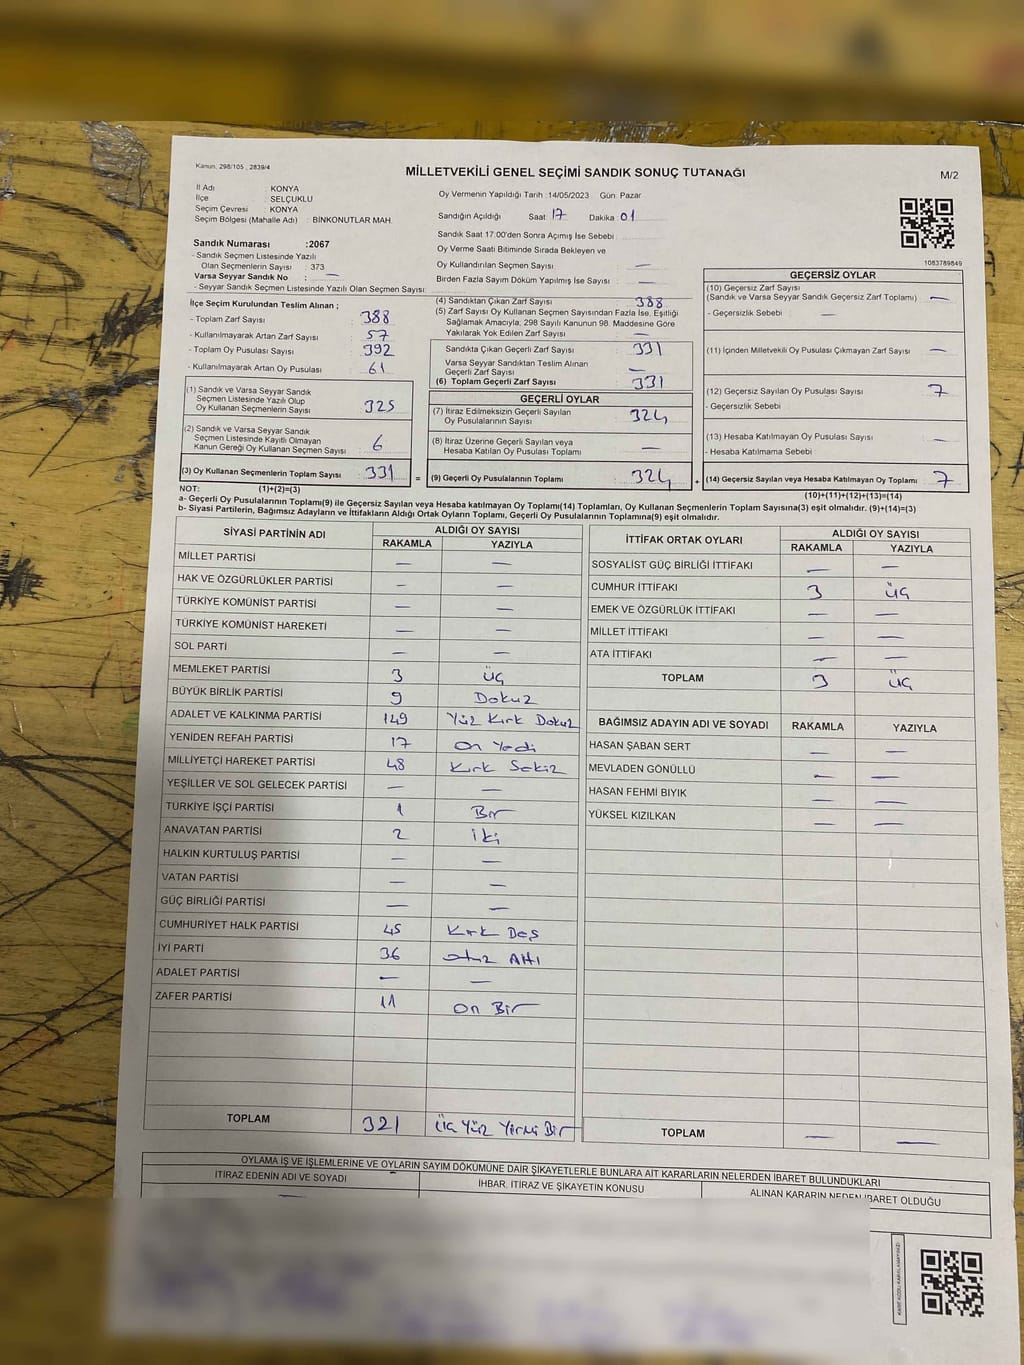 Kanun: 298/105 , 2839/4
MİLLETVEKİLİ GENEL SEÇİMİ SANDIK SONUÇ TUTANAĞI
M/2
İl Adı : KONYA
İlçe : SELÇUKLU
Seçim Çevresi : KONYA
Seçim Bölgesi (Mahalle Adı) : BİNKONUTLAR MAH.
Sandık Numarası :2067
- Sandık Seçmen Listesinde Yazılı
Olan Seçmenlerin Sayısı : 373
Varsa Seyyar Sandık No : —
- Seyyar Sandık Seçmen Listesinde Yazılı Olan Seçmen Sayısı:
İlçe Seçim Kurulundan Teslim Alınan ;
- Toplam Zarf Sayısı 388
- Kullanılmayarak Artan Zarf Sayısı 57
- Toplam Oy Pusulası Sayısı 392
- Kullanılmayarak Artan Oy Pusulası 61
(1) Sandık ve Varsa Seyyar Sandık
Seçmen Listesinde Yazılı Olup
Oy Kullanan Seçmenlerin Sayısı 325
(2) Sandık ve Varsa Seyyar Sandık
Seçmen Listesinde Kayıtlı Olmayan
Kanun Gereği Oy Kullanan Seçmen Sayısı 6
(3) Oy Kullanan Seçmenlerin Toplam Sayısı 331 =
Oy Vermenin Yapıldığı Tarih :14/05/2023 Gün: Pazar
Sandığın Açıldığı Saat 17 Dakika 01
Sandık Saat 17.00'den Sonra Açımış İse Sebebi :
Oy Verme Saati Bitiminde Sırada Bekleyen ve
Oy Kullandırılan Seçmen Sayısı : —
Birden Fazla Sayım Döküm Yapılmış İse Sayısı : —
(4) Sandıktan Çıkan Zarf Sayısı 388
(5) Zarf Sayısı Oy Kullanan Seçmen Sayısından Fazla İse, Eşitliği
Sağlamak Amacıyla, 298 Sayılı Kanunun 98. Maddesine Göre
Yakılarak Yok Edilen Zarf Sayısı —
Sandıkta Çıkan Geçerli Zarf Sayısı 331
Varsa Seyyar Sandıktan Teslim Alınan
Geçerli Zarf Sayısı —
(6) Toplam Geçerli Zarf Sayısı 331
GEÇERLİ OYLAR
(7) İtiraz Edilmeksizin Geçerli Sayılan
Oy Pusulalarının Sayısı 324
(8) İtiraz Üzerine Geçerli Sayılan veya
Hesaba Katılan Oy Pusulası Toplamı —
(9) Geçerli Oy Pusulalarının Toplamı 324 +
1083789849
GEÇERSİZ OYLAR
(10) Geçersiz Zarf Sayısı
(Sandık ve Varsa Seyyar Sandık Geçersiz Zarf Toplamı) —
- Geçersizlik Sebebi —
(11) İçinden Milletvekili Oy Pusulası Çıkmayan Zarf Sayısı —
(12) Geçersiz Sayılan Oy Pusulası Sayısı 7
- Geçersizlik Sebebi
(13) Hesaba Katılmayan Oy Pusulası Sayısı —
- Hesaba Katılmama Sebebi
(14) Geçersiz Sayılan veya Hesaba Katılmayan Oy Toplamı 7
NOT: (1)+(2)=(3)
(10)+(11)+(12)+(13)=(14)
a- Geçerli Oy Pusulalarının Toplamı(9) ile Geçersiz Sayılan veya Hesaba katılmayan Oy Toplamı(14) Toplamları, Oy Kullanan Seçmenlerin Toplam Sayısına(3) eşit olmalıdır. (9)+(14)=(3)
b- Siyasi Partilerin, Bağımsız Adayların ve İttifakların Aldığı Ortak Oyların Toplamı, Geçerli Oy Pusulalarının Toplamına(9) eşit olmalıdır.
SİYASİ PARTİNİN ADI ALDIĞI OY SAYISI
RAKAMLA YAZIYLA
MİLLET PARTİSİ — —
HAK VE ÖZGÜRLÜKLER PARTİSİ — —
TÜRKİYE KOMÜNİST PARTİSİ — —
TÜRKİYE KOMÜNİST HAREKETİ — —
SOL PARTİ — —
MEMLEKET PARTİSİ 3 üç
BÜYÜK BİRLİK PARTİSİ 9 Dokuz
ADALET VE KALKINMA PARTİSİ 149 Yüz Kırk Dokuz
YENİDEN REFAH PARTİSİ 17 On Yedi
MİLLİYETÇİ HAREKET PARTİSİ 48 Kırk Sekiz
YEŞİLLER VE SOL GELECEK PARTİSİ — —
TÜRKİYE İŞÇİ PARTİSİ 1 Bir
ANAVATAN PARTİSİ 2 iki
HALKIN KURTULUŞ PARTİSİ — —
VATAN PARTİSİ — —
GÜÇ BİRLİĞİ PARTİSİ — —
CUMHURİYET HALK PARTİSİ 45 Kırk Beş
İYİ PARTİ 36 otuz Altı
ADALET PARTİSİ — —
ZAFER PARTİSİ 11 On Bir
TOPLAM 321 Üç Yüz Yirmi Bir
İTTİFAK ORTAK OYLARI ALDIĞI OY SAYISI
RAKAMLA YAZIYLA
SOSYALİST GÜÇ BİRLİĞİ İTTİFAKI — —
CUMHUR İTTİFAKI 3 üç
EMEK VE ÖZGÜRLÜK İTTİFAKI — —
MİLLET İTTİFAKI — —
ATA İTTİFAKI — —
TOPLAM 3 üç
BAĞIMSIZ ADAYIN ADI VE SOYADI RAKAMLA YAZIYLA
HASAN ŞABAN SERT — —
MEVLADEN GÖNÜLLÜ — —
HASAN FEHMİ BIYIK — —
YÜKSEL KIZILKAN — —
TOPLAM — —
OYLAMA İŞ VE İŞLEMLERİNE VE OYLARIN SAYIM DÖKÜMÜNE DAİR ŞİKAYETLERLE BUNLARA AİT KARARLARIN NELERDEN İBARET BULUNDUKLARI
İTİRAZ EDENİN ADI VE SOYADI İHBAR, İTİRAZ VE ŞİKAYETİN KONUSU ALINAN KARARIN NEDEN İBARET OLDUĞU